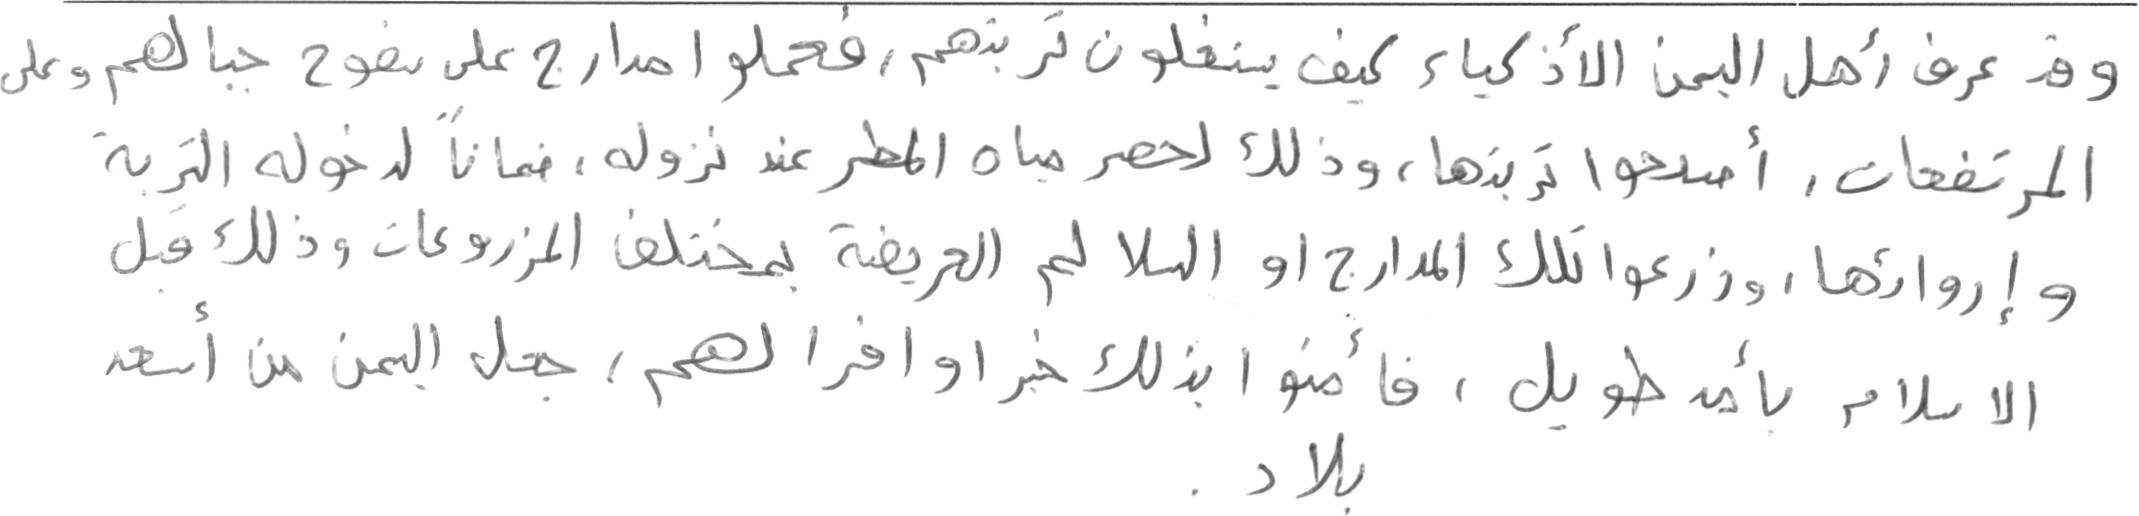 وقد عرف أهل اليمن الأذكياء كيف يستغلون تربتهم، فعملوا مدارج على سفوح جبالهم وعلى
المرتفعات، أصلحوا تربتها، وذلك لحصر مياه المطر عند نزوله، ضماناً لدخوله التربة
وإروائها، وزرعوا تلك المدارج او السلالم العريضة بمختلف المزروعات وذلك قبل
الاسلام بأمد طويل، فأمنوا بذلك خيرا وافرا لهم، جعل اليمن من أسعد
بلاد.